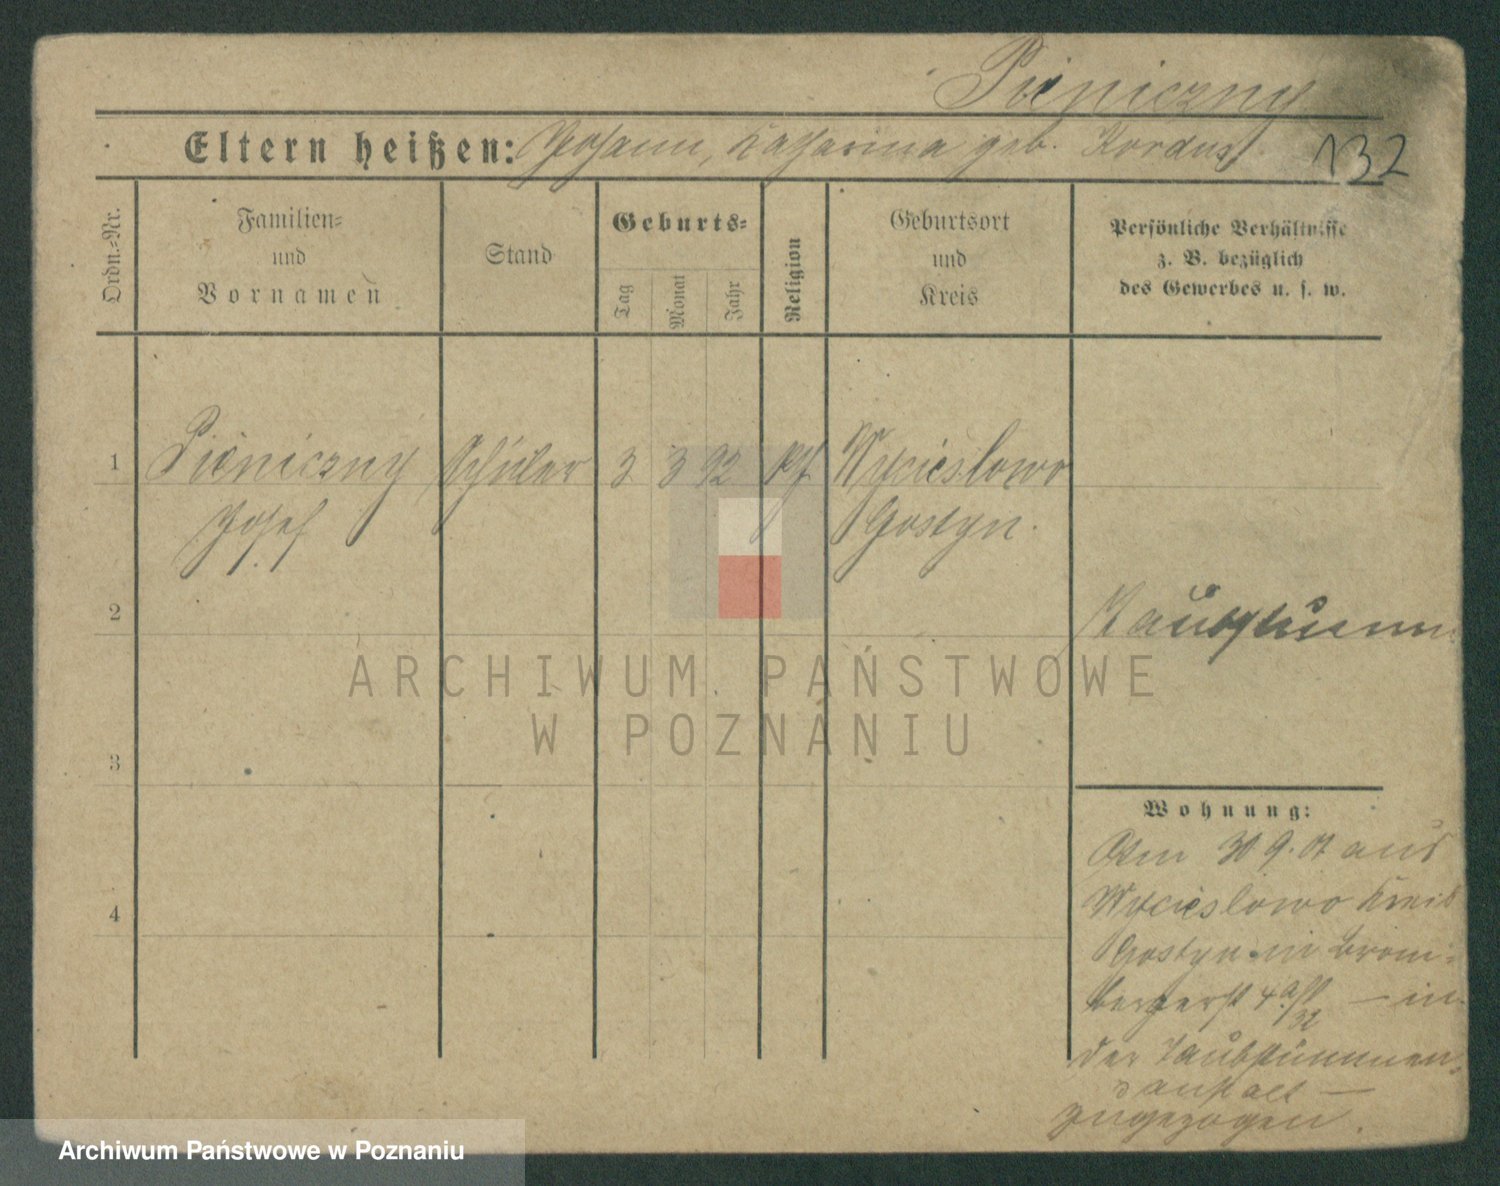 Pieniczny
Eltern heißen: Johann, Katharina geb. Kordus
132
Ordn.-Nr.
Familien- und Vornamen
Stand
Geburts-
Tag
Monat
Jahr
Religion
Geburtsort und Kreis
Persönliche Verhältnisse
z. B. bezüglich
des Gewerbes u. s. w.
1 Pieniczny Schüler 3 3 92 kth Wycieslowo
Josef Gostyn.
2
Taubstumm
3
Wohnung:
Am 30 9. 07 aus
Wycieslowo Kreis
4
Gostyn in Brom-
bergerst 4 — in
der Taubstummen-
anstalt —
zugezogen.
ARCHIWUM PAŃSTWOWE
W POZNANIU
Archiwum Państwowe w Poznaniu